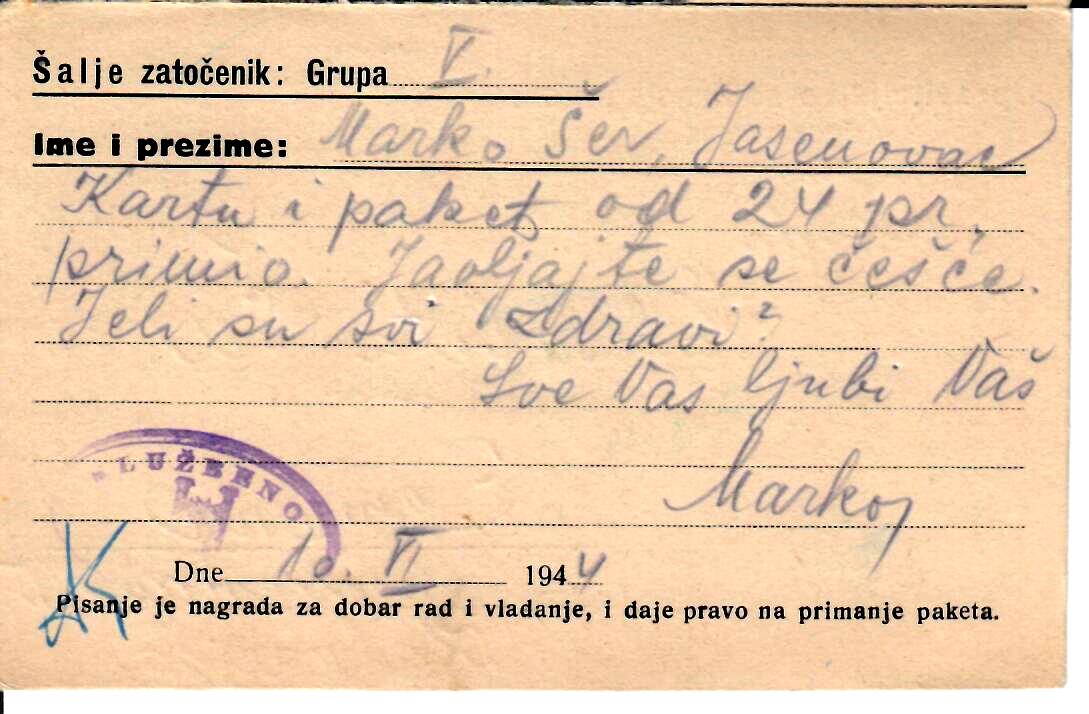 Šalje zatočenik: Grupa V.
Ime i prezime: Marko Šer, Jasenovac
Kartu i paket od 24 pr.
primio. Javljajte se češće.
Jeli su svi zdravi?
Sve Vas ljubi Vaš
Marko
SLUŽBENO
Dne 10. VI 1944
Pisanje je nagrada za dobar rad i vladanje, i daje pravo na primanje paketa.